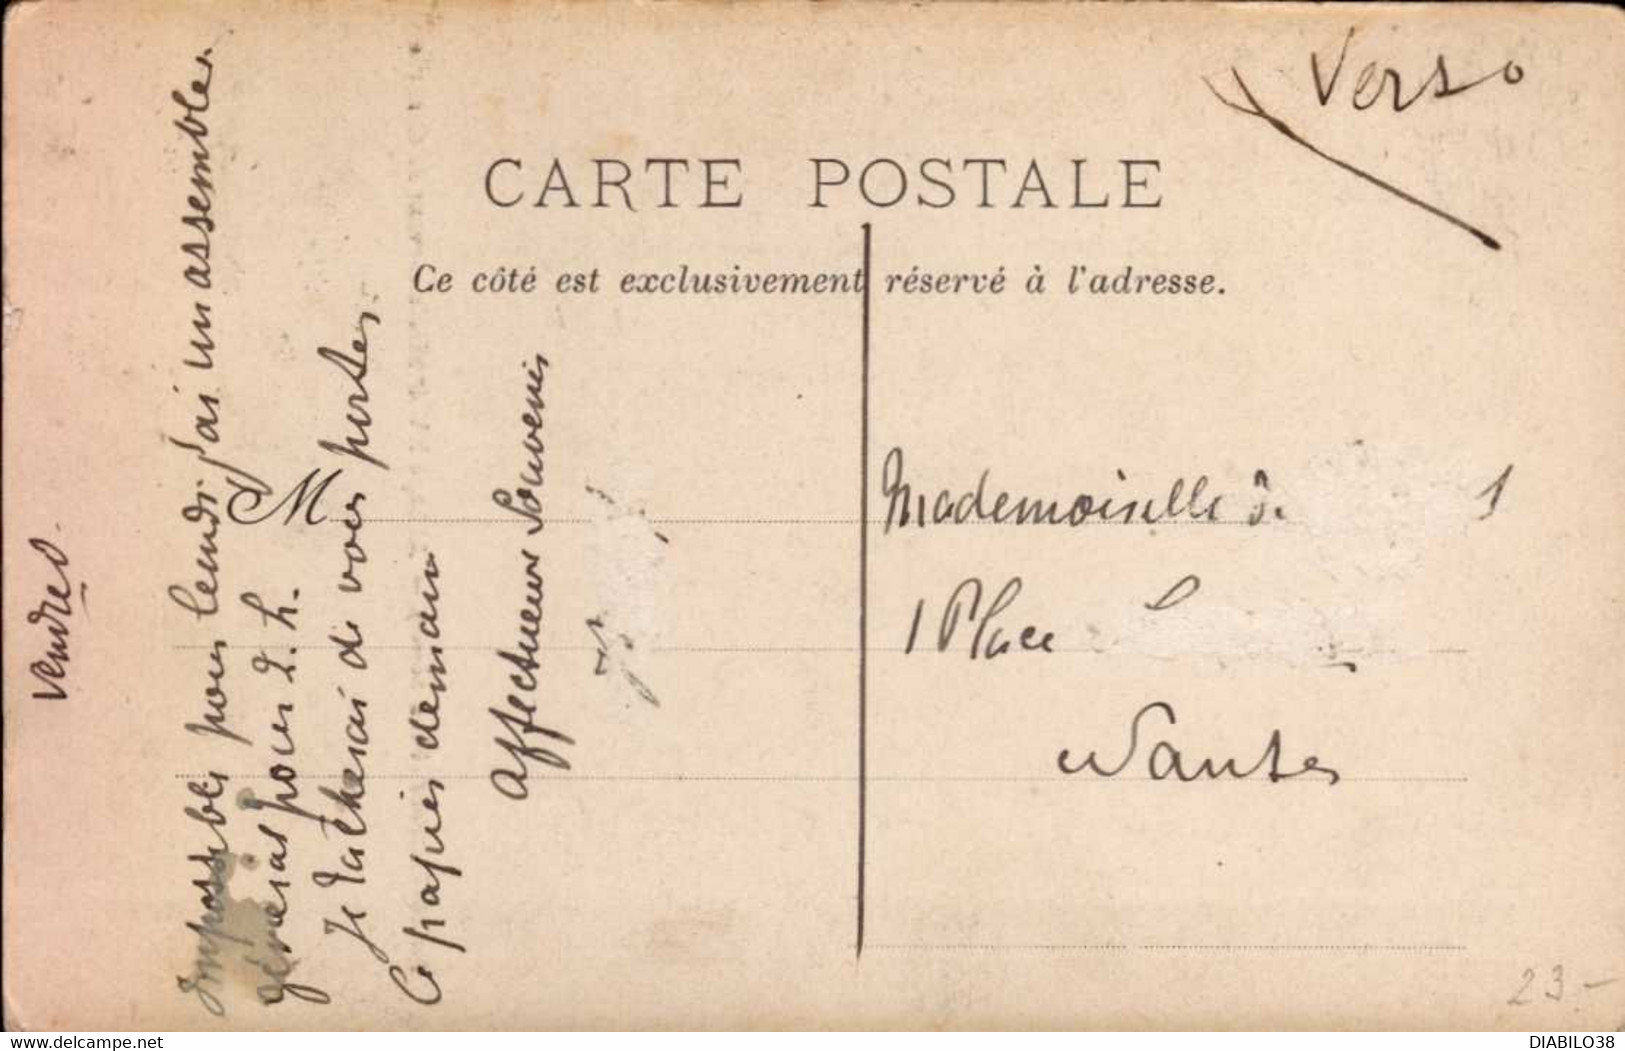 Verso
CARTE POSTALE
Ce côté est exclusivement réservé à l'adresse.
vendred.
Impossible pour lundi j'ai un assemblée
général pour 2 h.
M
Je tacherai de vous porter
Ce papier demain
Affectueux Souvenir
Mademoiselle
1 Place
Nantes
23 -
delcampe.net
DIABILO38